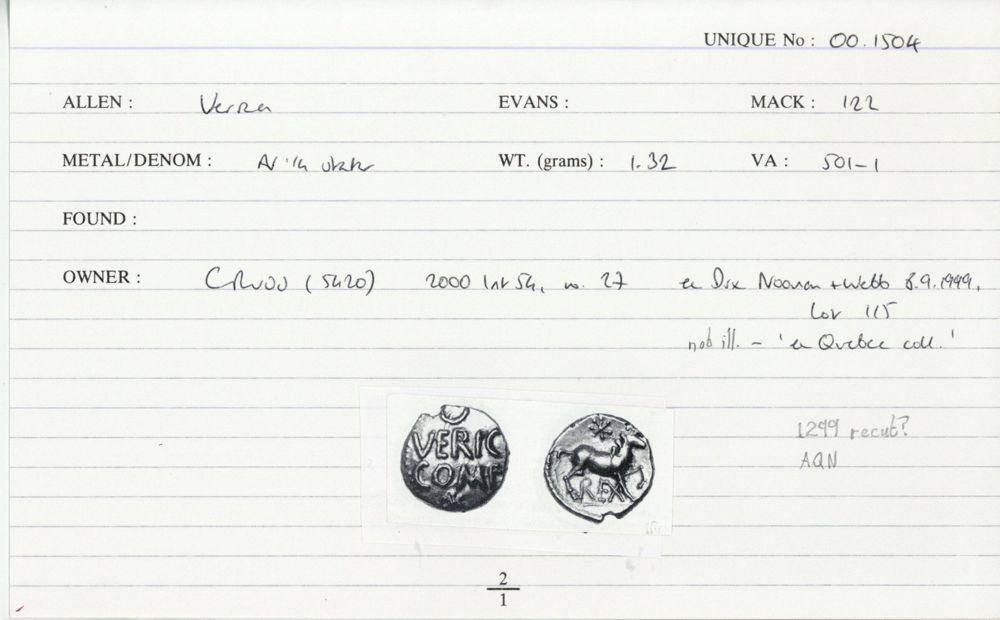 UNIQUE No : 00.1504
ALLEN : Verica EVANS : MACK : 122
METAL/DENOM : AV ¼ stater WT. (grams) : 1.32 VA : 501-1
FOUND :
OWNER : 2000 no. 27 ex Dix Noonan + Webb 8.9.1999,
Lot 115
not ill. - 'ex Quebec coll.'
VERIC
COMF
REX
1299 recut?
AQN
2
1